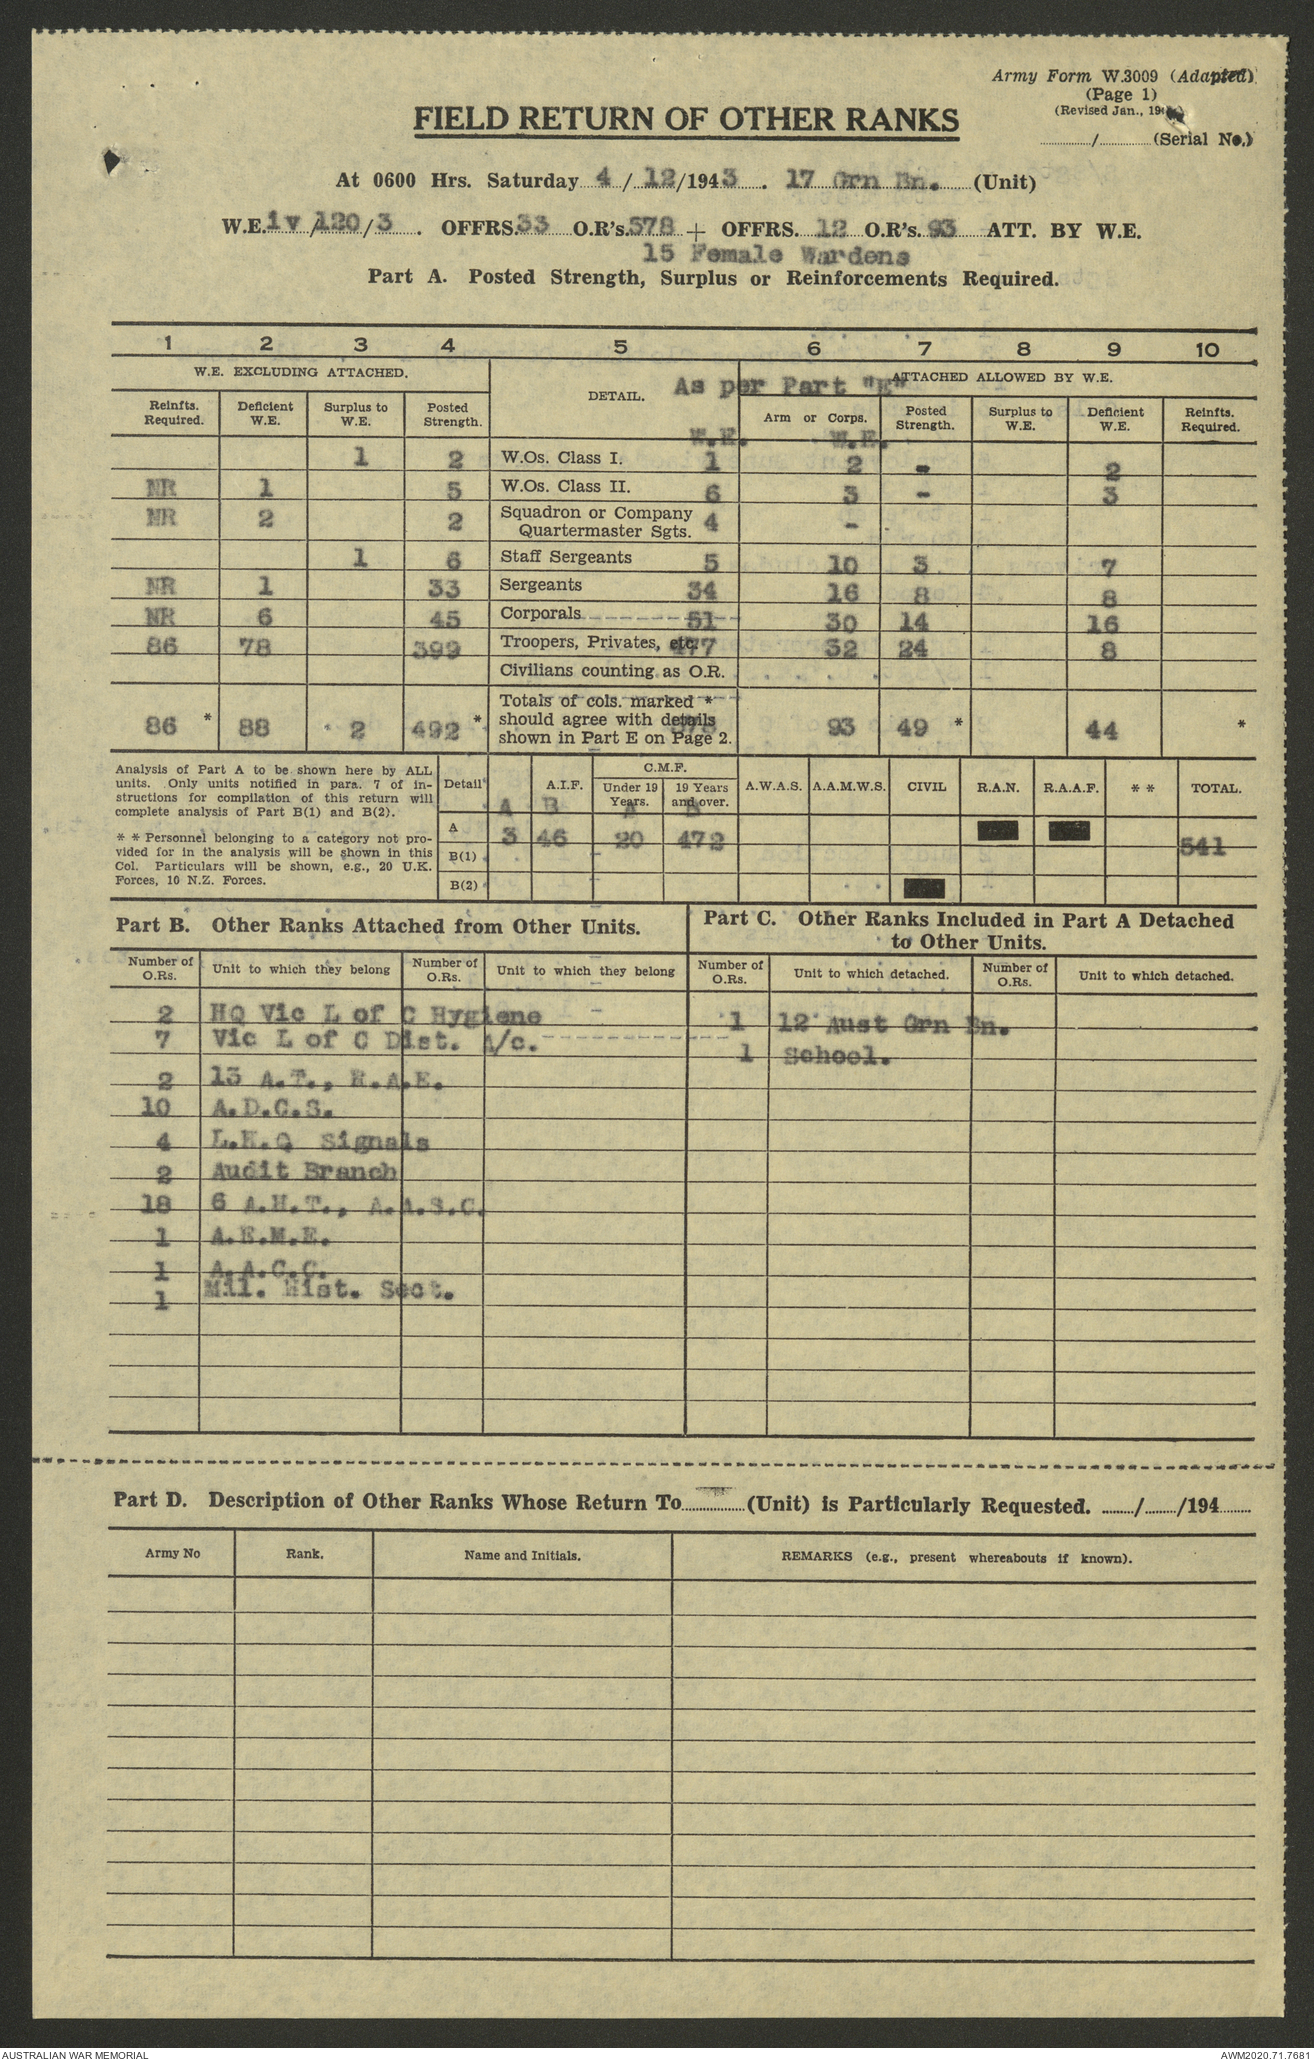 Army Form W.3009 (Adapted)
(Page 1)
(Revised Jan., 19
FIELD RETURN OF OTHER RANKS
/ (Serial No.)
At 0600 Hrs. Saturday 4 / 12/1943 . 17 Grn Bn. (Unit)
W.E. iv /120/3 . OFFRS. 33 O.R's. 578 + OFFRS. 12 O.R's. 93 ATT. BY W.E.
15 Female Wardens
Part A. Posted Strength, Surplus or Reinforcements Required.
1 2 3 4 5 6 7 8 9 10
W.E. EXCLUDING ATTACHED. DETAIL. As per Part "E" ATTACHED ALLOWED BY W.E.
Reinfts. Required. Deficient W.E. Surplus to W.E. Posted Strength. W.E. Arm or Corps. W.E. Posted Strength. Surplus to W.E. Deficient W.E. Reinfts. Required.
1 2 W.Os. Class I. 1 2 - 2
NR 1 5 W.Os. Class II. 6 3 - 3
NR 2 2 Squadron or Company Quartermaster Sgts. 4 -
1 6 Staff Sergeants 5 10 3 7
NR 1 33 Sergeants 34 16 8 8
NR 6 45 Corporals 51 30 14 16
86 78 399 Troopers, Privates, etc. 477 32 24 8
Civilians counting as O.R.
Totals of cols. marked *
should agree with details
shown in Part E on Page 2.
86 * 88 2 492 * 578 93 49 * 44 *
Analysis of Part A to be shown here by ALL
units. Only units notified in para. 7 of in-
structions for compilation of this return will
complete analysis of Part B(1) and B(2).
* * Personnel belonging to a category not pro-
vided for in the analysis will be shown in this
Col. Particulars will be shown, e.g., 20 U.K.
Forces, 10 N.Z. Forces.
Detail A.I.F. C.M.F. A.W.A.S. A.A.M.W.S. CIVIL R.A.N. R.A.A.F. * * TOTAL.
Under 19 Years. 19 Years and over.
A B A B
A 3 46 20 472 541
B(1)
B(2)
Part B. Other Ranks Attached from Other Units.
Part C. Other Ranks Included in Part A Detached
to Other Units.
Number of O.Rs. Unit to which they belong Number of O.Rs. Unit to which they belong Number of O.Rs. Unit to which detached. Number of O.Rs. Unit to which detached.
2 HQ Vic L of C Hygiene 1 12 Aust Grn Bn.
7 Vic L of C Dist. A/c. 1 School.
2 13 A.T., R.A.E.
10 A.D.C.S.
4 L.H.Q Signals
2 Audit Branch
18 6 A.H.T., A.A.S.C.
1 A.E.M.E.
1 A.A.C.C.
1 Mil. Hist. Sect.
Part D. Description of Other Ranks Whose Return To (Unit) is Particularly Requested. / /194
Army No Rank. Name and Initials. REMARKS (e.g., present whereabouts if known).
AUSTRALIAN WAR MEMORIAL AWM2020.71.7681